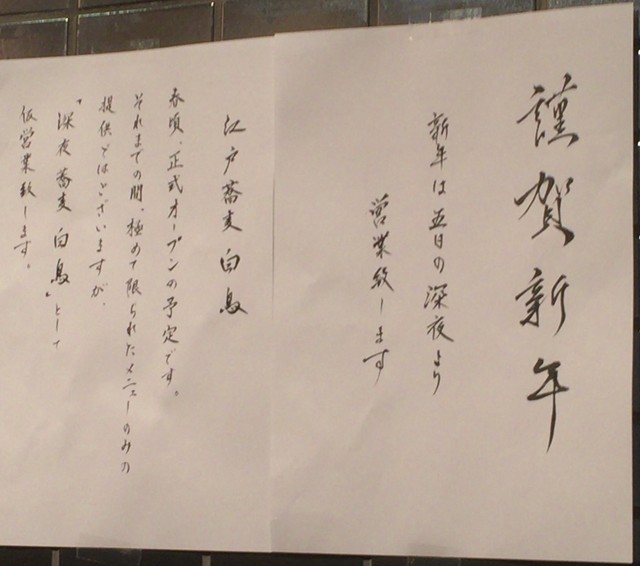 謹賀新年
新年は五日の深夜より
営業致します
江戸蕎麦 白鳥
春頃、正式オープンの予定です。
それまでの間、極めて限られたメニューのみの
提供ではございますが、
『深夜蕎麦 白鳥』として
仮営業致します。